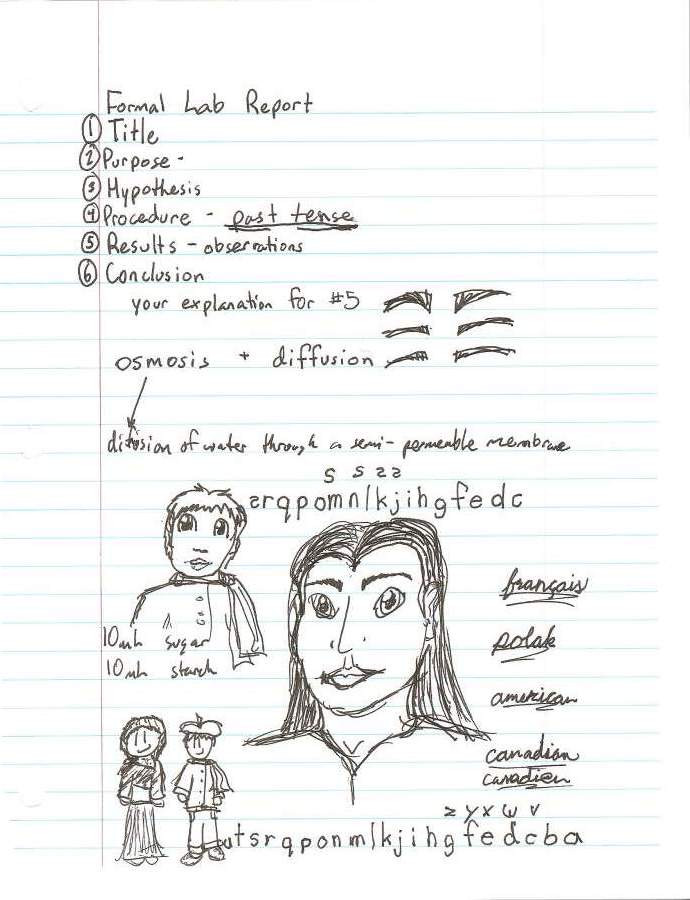 Formal Lab Report
① Title
② Purpose -
③ Hypothesis
④ Procedure - past tense
⑤ Results - observations
⑥ Conclusion
your explanation for #5
osmosis + diffusion
difusion of water through a semi-permeable membrane
s s z z
srqpomnlkjihgfedc
français
10mL sugar
polak
10mL starch
american
canadian
canadien
z y x w v
utsrqponmlkjihgfedcba